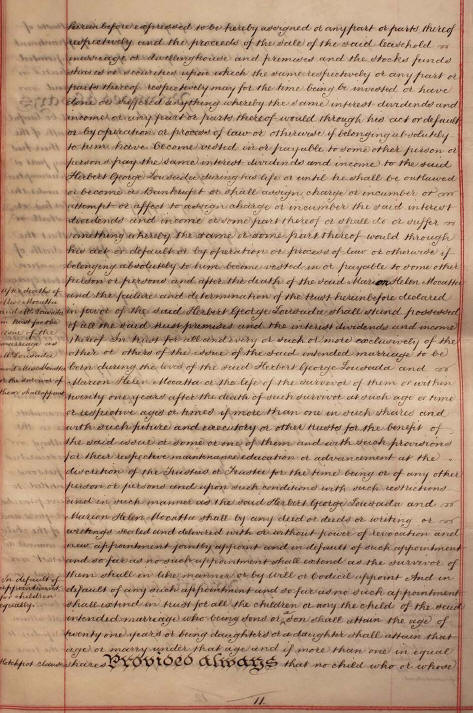 hereinbefore expressed to be hereby assigned or any part or parts thereof
respectively and the proceeds of the sale of the said leasehold
messuage or dwellinghouse and premises and the stocks funds
shares or securities upon which the same respectively or any part or
parts thereof respectively may for the time being be invested or have
done or suffered anything whereby the same interest dividends and
income or any part or parts thereof would through his act or default
or by operation or process of law or otherwise if belonging absolutely
to him have become vested in or payable to some other person or
persons pay the same interest dividends and income to the said
Herbert George Lousada during his life or until he shall be outlawed
or become a Bankrupt or shall assign charge or incumber or
attempt or affect to assign charge or incumber the said interest
dividends and income or some part thereof or shall do or suffer
something whereby the same or some part thereof would through
his act or default or by operation or process of law or otherwise if
belonging absolutely to him become vested in or payable to some other
person or persons and after the death of the said Marion Helen Mocatta
and the failure and determination of the trust hereinbefore declared
in favor of the said Herbert George Lousada shall stand possessed
of all the said trust premises and the interest dividends and income
thereof In trust for all and every or such or more exclusively of the
other or others of the issue of the said intended marriage to be
born during the lives of the said Herbert George Lousada and
Marion Helen Mocatta or the life of the survivor of them or within
twenty one years after the death of such survivor at such age or time
or respective ages or times if more than one in such shares and
with such future and executory or other trusts for the benefit of
the said issue or some or one of them and with such provisions
for their respective maintenance education or advancement at the
discretion of the Trustees or Trustee for the time being or of any other
person or persons and upon such conditions with such restrictions
and in such manner as the said Herbert George Lousada and
Marion Helen Mocatta shall by any deed or deeds or writing or
writings sealed and delivered with or without power of revocation and
new appointment jointly appoint and in default of such appointment
and so far as no such appointment shall extend as the survivor of
them shall in like manner or by will or Codicil appoint And in
default of any such appointment and so far as no such appointment
shall extend in trust for all the children or any the child of the said
intended marriage who being sons or a son shall attain the age of
twenty one years or being daughters or a daughter shall attain that
age or marry under that age and if more than one in equal
shares Provided always that no child who or whose
after deaths of
Miss Mocatta
and Mr Lousada
in trust for the
issue of the
marriage as
Mr Lousada
and Miss Mocatta
or the survivor of
them shall appoint
In default of
appointment
for children
equally.
Hotchpot clause
11.